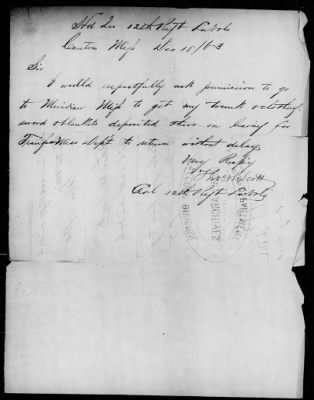 Hd Qu 12th Regt La Vols
Canton Miss Dec 18/63
Sir
I would respectfully ask permission to go
to Meridian Miss to get my trunk & clothing
sword & blankets deposited there on leaving for
Miss Dept to return without delay
Very Respy
Thos M Scott
Col 12th Regt La Vols